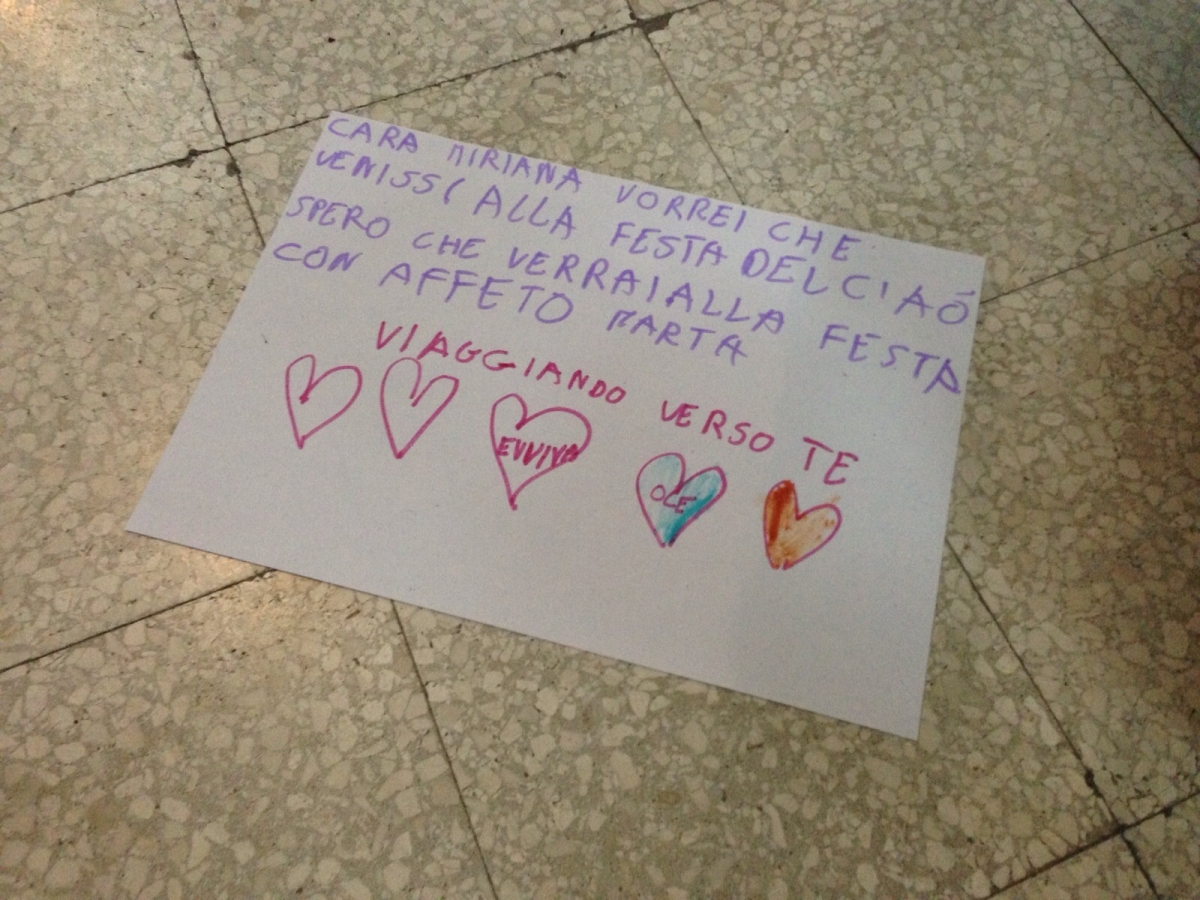 CARA MIRIANA VORREI CHE
VENISSI ALLA FESTA DEL CIAÓ
SPERO CHE VERRAI ALLA FESTA
CON AFFETO MARTA
VIAGGIANDO VERSO TE
EVVIVA
OLE